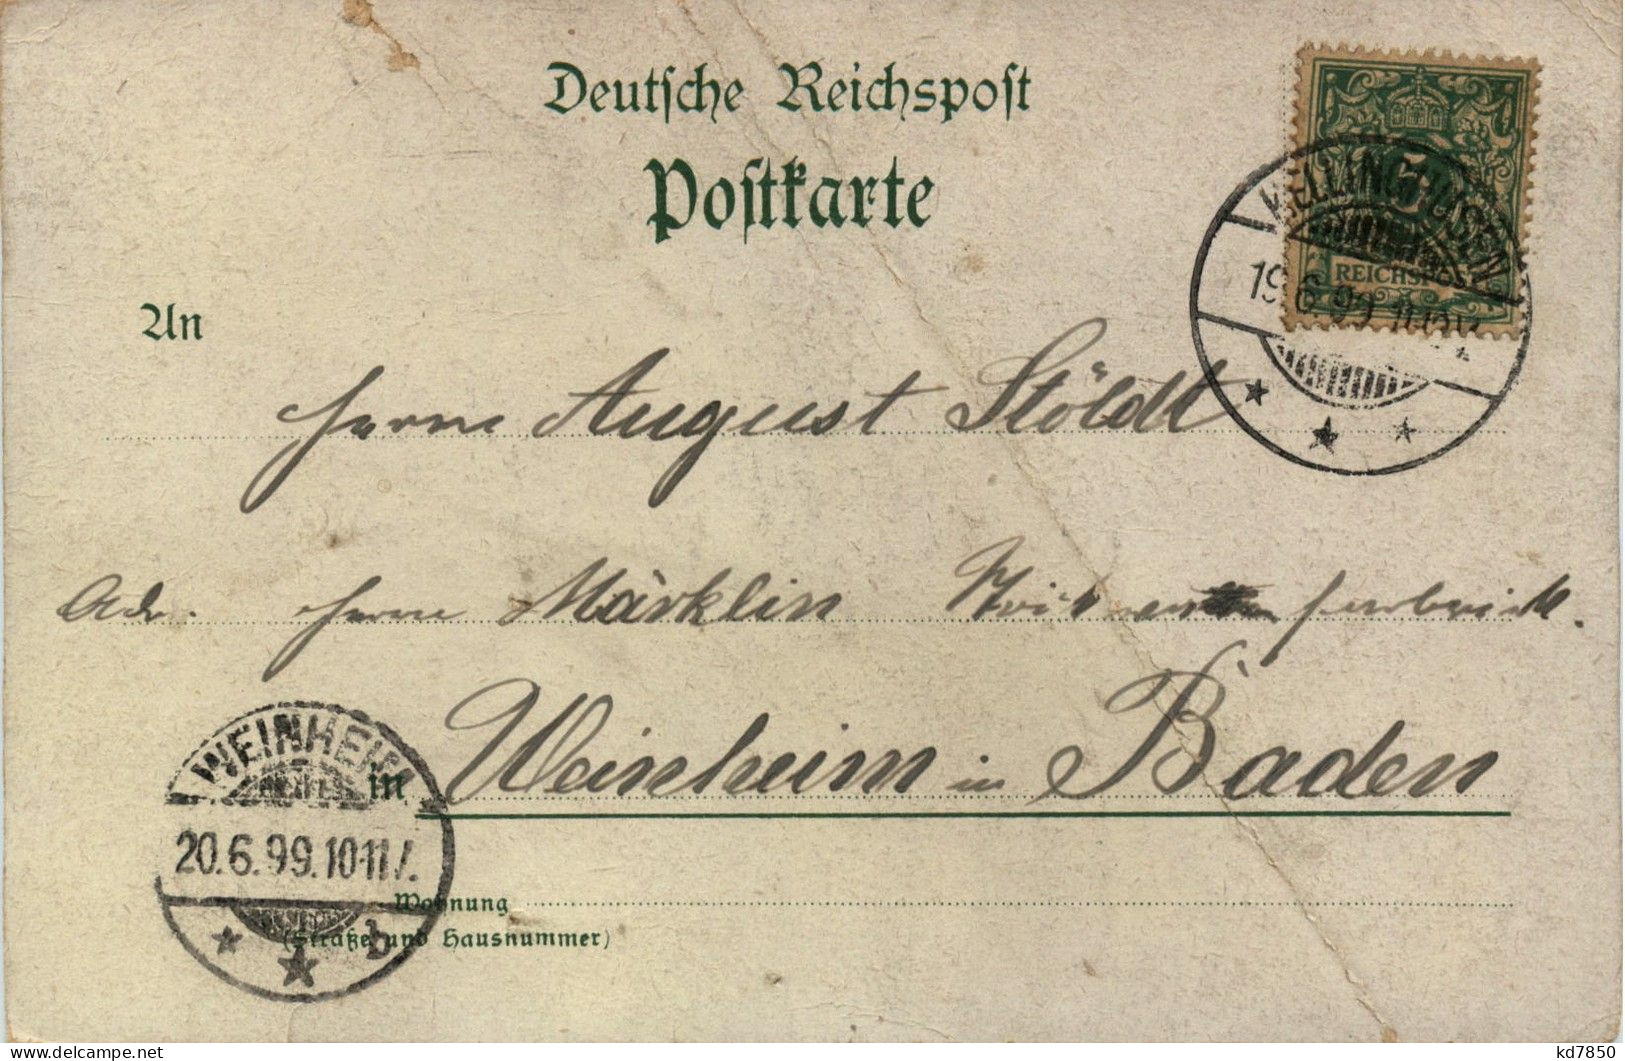 Deutsche Reichspost
Postkarte
KELLINGHUSEN
19.6.99.
5
REICHSPOST
An
Herrn August Stöldt
Adr. Herrn Märklin
WEINHEIM
in Weinheim in Baden
20.6.99.10-11
Wohnung
(Straße und Hausnummer)
b
delcampe.net
kd7850